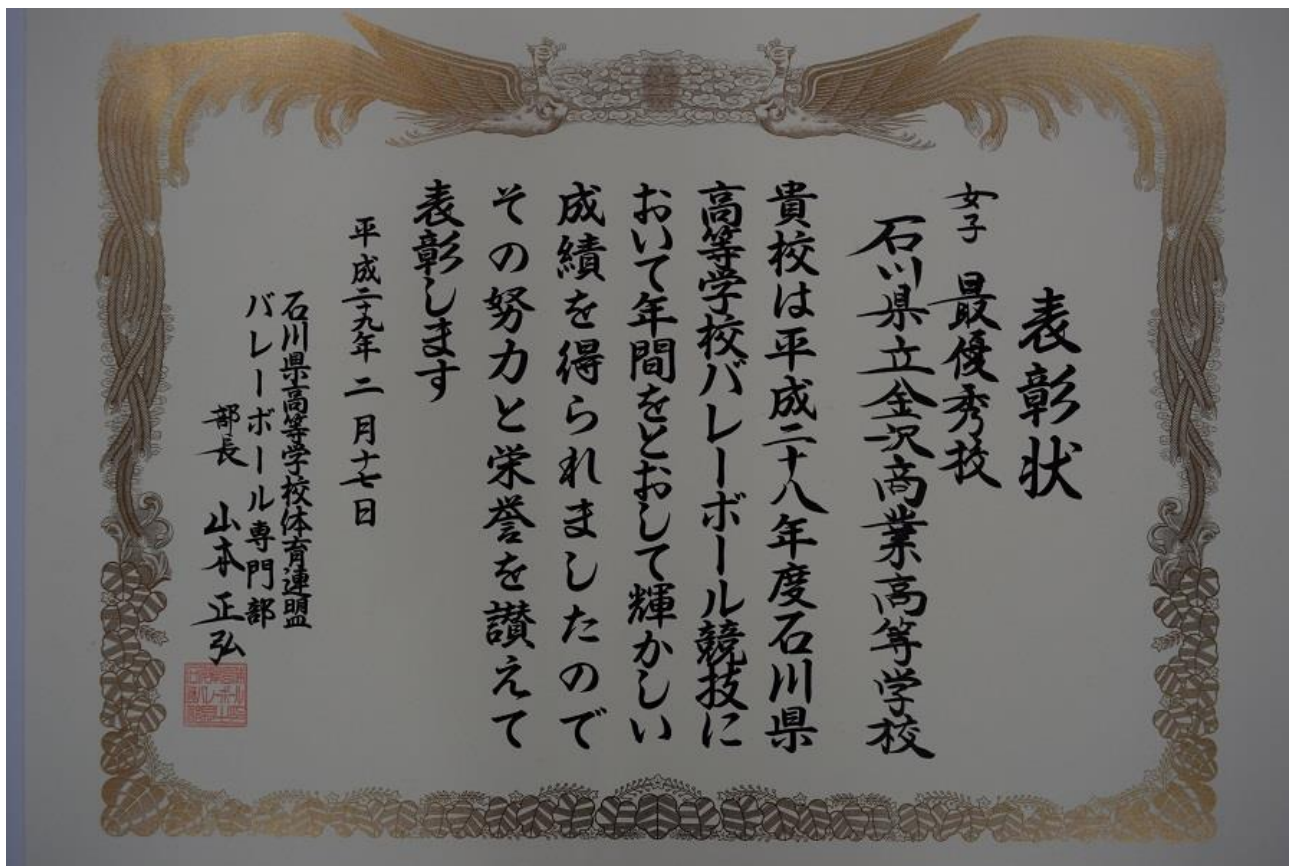 表彰状
女子 最優秀校
石川県立金沢商業高等学校
貴校は平成二十八年度石川県
高等学校バレーボール競技に
おいて年間をとおして輝かしい
成績を得られましたので
その努力と栄誉を讃えて
表彰します
平成二十九年 二月十七日
石川県高等学校体育連盟
バレーボール専門部
部長 山本正弘